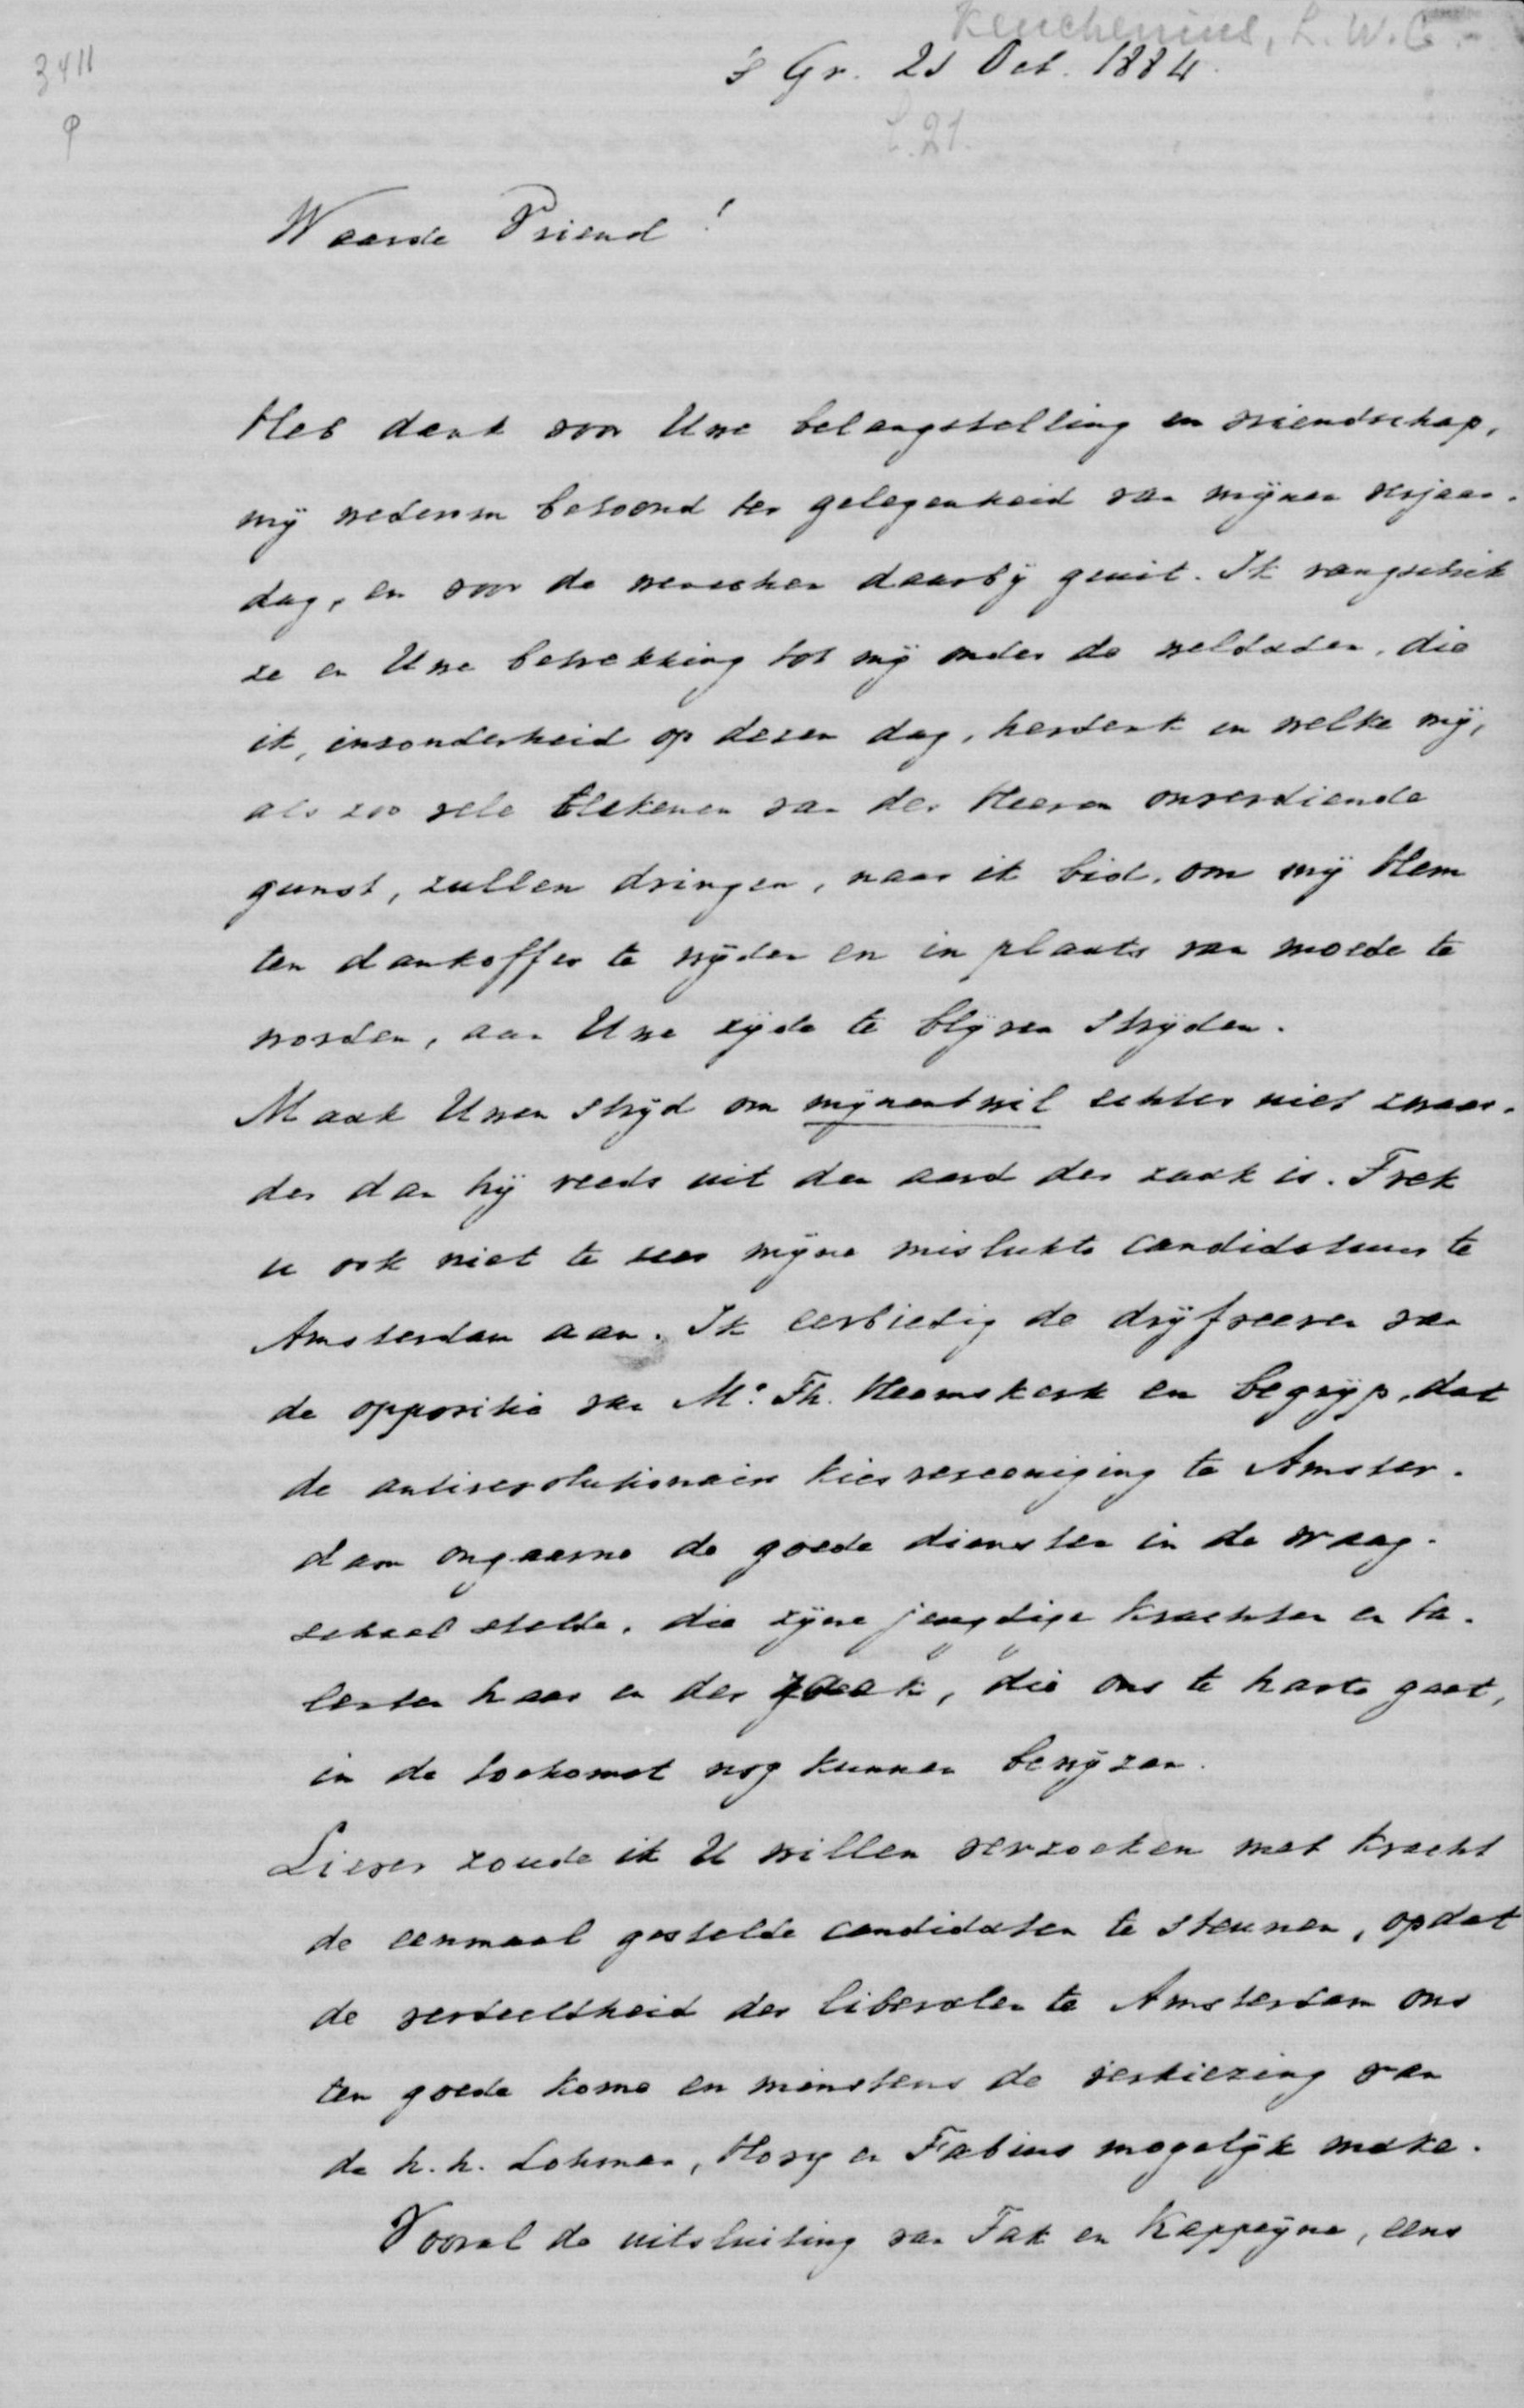 Keuchenius, L. W. C.
3411
's Gr. 21 Oct. 1884.
φ
L. 21.
Waarde Vriend!
Heb dank voor Uwe belangstelling en vriendschap,
mij wederom betoond ter gelegenheid van mijnen verjaar-
dag, en voor de wenschen daarbij geuit. Ik rangschik
ze en Uwe betrekking tot mij onder de weldaden, die
ik, inzonderheid op dezen dag, herdenk en welke mij,
als zoo vele teekenen van des Heeren onverdiende
gunst, zullen dringen, naar ik bid, om mij Hem
ten dankoffer te wijden en in plaats van moede te
worden, aan Uwe zijde te blijven strijden.
Maak Uwen strijd om mijnentwil echter niet zwaar-
der dan hij reeds uit den aard der zaak is. Trek
u ook niet te zeer mijne mislukte candidatuur te
Amsterdam aan. Ik eerbiedig de drijfveeren van
de oppositie van Mr. Th. Heemskerk en begrijp, dat
de antirevolutionaire kiesvereeniging te Amster-
dam ongaarne de goede diensten in de waag-
schaal stelde, die zijne jeugdige krachten en ta-
lenten haar en der zaak, die ons te harte gaat,
in de toekomst nog kunnen bewijzen.
Liever zoude ik U willen verzoeken met kracht
de eenmaal gestelde candidaten te steunen, opdat
de verdeeldheid der liberalen te Amsterdam ons
ten goede kome en minstens de verkiezing van
de h.h. Lohman, Hovy en Fabius mogelijk make.
Vooral de uitsluiting van Tak en Kappeyne, eens